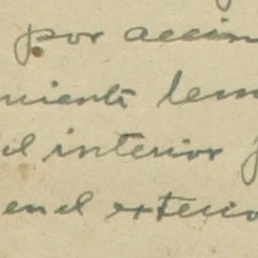 por accion
miento lem
el interior
en el exterio